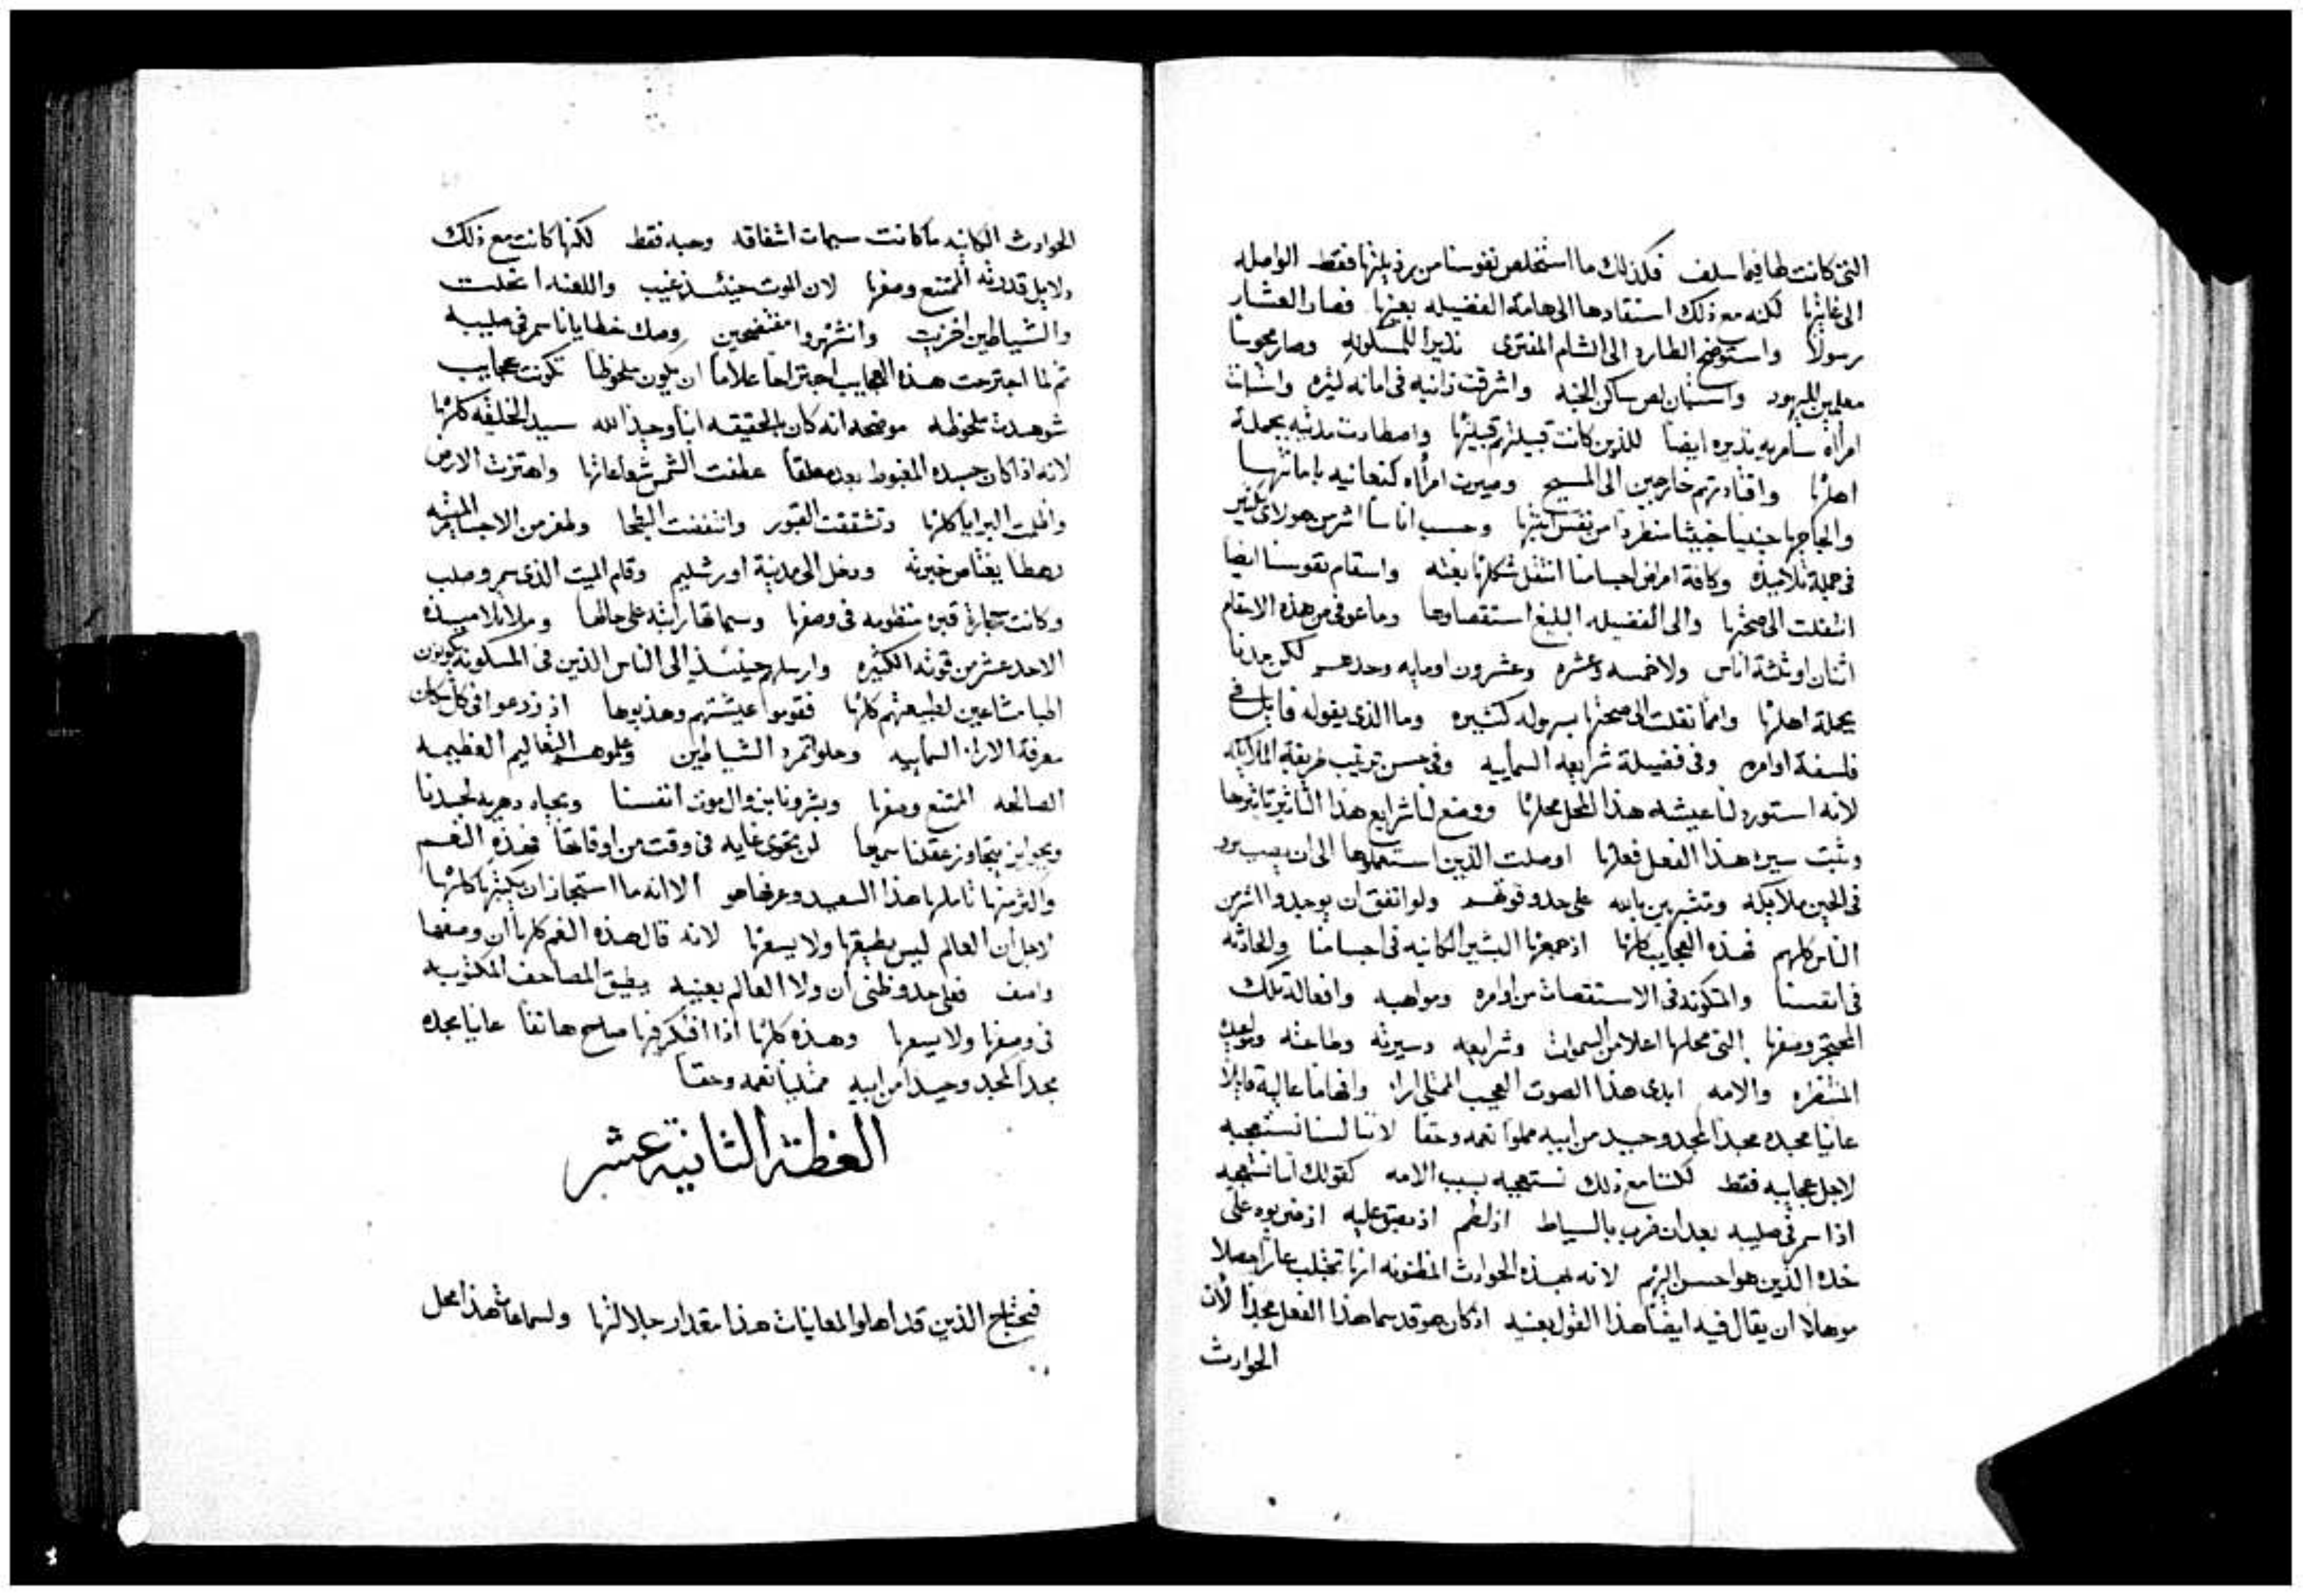 التى كانت لها فيما سلف فكذلك ما استخلص نفوسنا من رذيلتها فقط الواصله
الى غايتها لكنه مع ذلك استقادها الى هامة الفضيله بعينها فصار العشار
رسولا واستوضح الطارد الى الشام المفترى نذيرا للمسكونه وصار مجوسا
معلمين لليهود واستبان لص ساكن الجنه واشرقت زانيه فى امانه كثيره واستبانت
امراه سامريه نذيره ايضا للذين كانت قبيلتهم قبيلتها واصطادت مدينه بجملة
اهلها واقتادتهم خارجين الى المسيح وصيرت امراه كنعانيه بامانتها
والجاجها جنيا خبيثا منطردا من نفس ابنتها وحسب اناسا اشر من هولاى كثير
فى جملة تلاميذه وكافة امراض اجسامنا انتقل شكلها بغته واسقام نفوسنا ايضا
انتقلت الى صحتها والى الفضيله البليغ استقصاوها وما عوفى من هذه الاسقام
اثنان او ثلثة اناس ولا خمسه وعشره وعشرون او مايه وحدهم لكن مدنا
بجملة اهلها وامما نقلت الى صحتها بسهوله كثيره وما الذى يقوله قايل فى
فلسفة اوامره وفى فضيلة شرايعه السماييه وفى حسن ترتيب طريقة الملايكه
لانه استورد لنا عيشه هذا المحل محلها ووضع لنا شرايع هذا التاثير تاثيرها
وثبت سيره هذا الفعل فعلها اوصلت الذين استعملوها الى ان يصيرو
فى الحين ملايكه ومتشبهين بالله على حد وقوتهم ولو اتفق ان يوجدوا اشر من
الناس كلهم فهذه العجايب كلها اذ جمعها البشير الكاينه فى اجسامنا والحادثه
فى انفسنا والمتكونه فى الاستقصات من اوامره ومواهبه وافعاله تلك
المحتجز وصفها التى محلها اعلا من السموات وشرايعه وسيرته وطاعته
المنتظره والامه ابدى هذا الصوت العجيب الممتلى ارا وافهاما عالية قايلا
عاينا مجده مجدا كمجد وحيد من ابيه مملوا نعمه وحقا لاننا لسنا نستعجبه
لاجل عجايبه فقط لكننا مع ذلك نستعجبه بسبب الامه كقولك اننا نستعجبه
اذا سمر فى صليبه بعد ان ضرب بالسياط اذ لطم اذ بصق عليه اذ ضربوه على
خده الذين هو احسن اليهم لانه بهذه الحوادث المظنونه انها تجلب عارا مصلا
موهلا ان يقال فيه ايضا هذا القول بعينه اذ كان هو قد سما هذا الفعل مجدا لان
الحوادث
الحوادث الكاينه ما كانت سمات اشفاقه وحبه فقط لكنها كانت مع ذلك
دلايل قدرته الممتنع وصفها لان الموت حينئذ غيب واللعنه انحلت
والشياطين اخزيت وانشهروا مفتضحين وصك خطايانا سمر فى صليبه
ثم لما اجترحت هذه العجايب اجتراحا علاما ان يكون ملحوظا تكونت عجايب
شوهدت ملحوظه موضحه انه كان بالحقيقه ابنا وحيدا لله سيد الخليقه كلها
لانه اذ كان جسده المغبوط بعد معلقا عطفت الشمس شعاعاتها واهتزت الارض
واظلمت البرايا كلها وتشققت القبور وانتفضت البطحا وطفر من الاجساد الميته
رهطا يفتا من خبرته ودخل الى مدينة اورشليم وقام الميت الذى سمر وصلب
وكانت حجارة قبره منظومه فى وصفها وسماتها راتبه على حالها وملا تلاميذه
الاحد عشر من قوته الكثيره وارسلهم حينئذ الى الناس الذين فى المسكونه يكونون
اطبا مشاعين لطبيعتهم كلها فقوموا عيشتهم وهذبوها اذ زرعوا فى كل مكان
معرفة الارا السماييه وحلوا تمرد الشياطين وعلموهم التعاليم العظيمه
الصالحه الممتنع وصفها وبشرونا بزوال موت انفسنا وبحياه دهريه لجسدنا
وبجوايز يتجاوز عقلنا سمعها لن تحوى غايه فى وقت من اوقاتها فهذه النعم
واكثر منها تاملها هذا السعيد وعرفها هو الا انه ما استجاز ان يكتبها كلها
لاجل ان العالم ليس يطيقها ولا يسعها لانه قال هذه النعم كلها ان وصفها
واصف فعلى حد وظنى ان ولا العالم بعينه يطيق المصاحف المكتوبه
فى وصفها ولا يسعها وهذه كلها اذا افتكر فيها صاح هاتفا عاينا مجده
مجدا كمجد وحيدا من ابيه ممتليا نعمه وحقا
العظة الثانية عشر
فيحتاج الذين قد اهلوا لمعاينات هذا مقدار جلالتها ولسماعات هذا محل